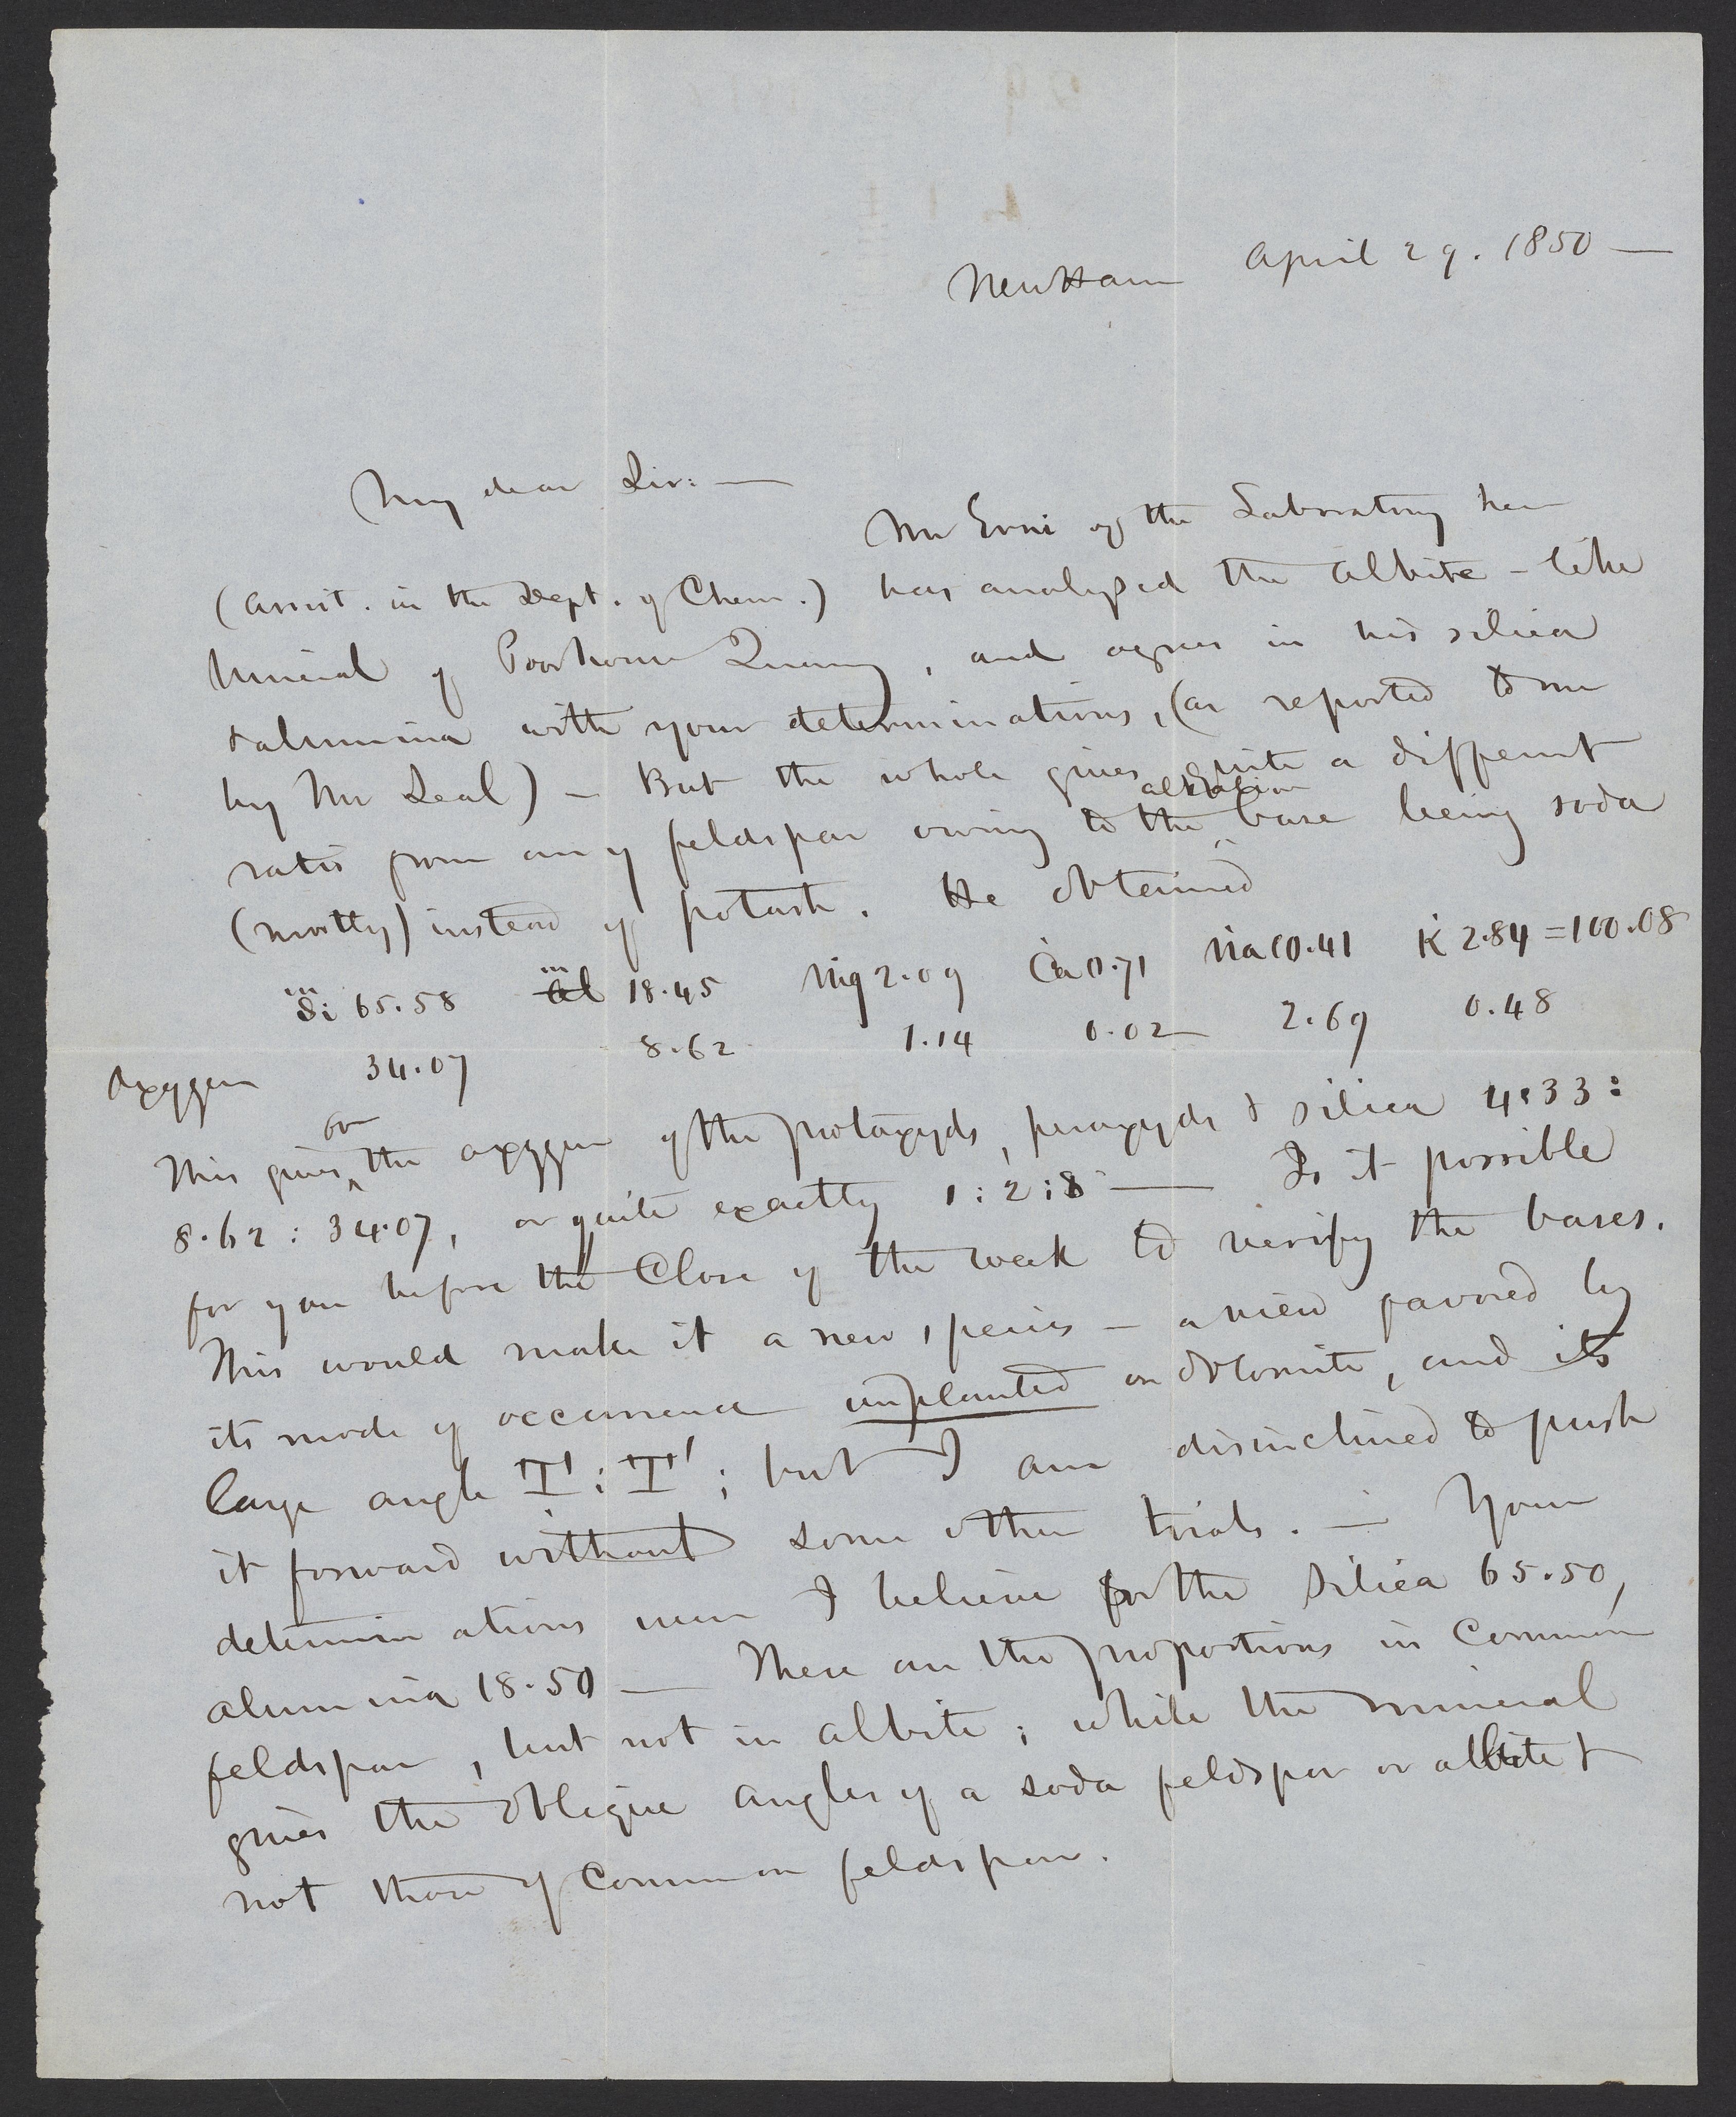 New Haven April 29. 1850 —
My dear Sir: —
Mr Erni of the Laboratory here
(assist. in the Dept. of Chem.) has analysed the albite-like
mineral of Poorhouse Quarry, and agrees in his silica
& alumina with your determinations, (as reported to me
by Mr Seal) — But the whole gives quite a different
alkaline
ratio from any feldspar owing to the ‸ base being soda
(mostly) instead of potash. He obtained
Si 65.58 Al 18.45 Mg 2.09 Ca 0.71 Na 10.41 K 2.84 = 100.08
Oxygen 34.07 8.62 1.14 0.02 2.69 0.48
for
This gives ‸ the oxygen of the protoxyds, peroxyds & silica 4.33 :
8.62 : 34.07, or quite exactly 1 : 2 : 8 — Is it possible
for you before the close of the week to verify the bases.
This would make it a new species — a view favored by
its mode of occurrence implanted on dolomite, and its
large angle T : T' ; but I am disinclined to push
it forward without some other trials. — Your
determinations were I believe for the silica 65.50,
alumina 18.50 — These are the proportions in common
feldspar, but not in albite ; while the mineral
gives the oblique angles of a soda feldspar or albite &
not those of common feldspar.